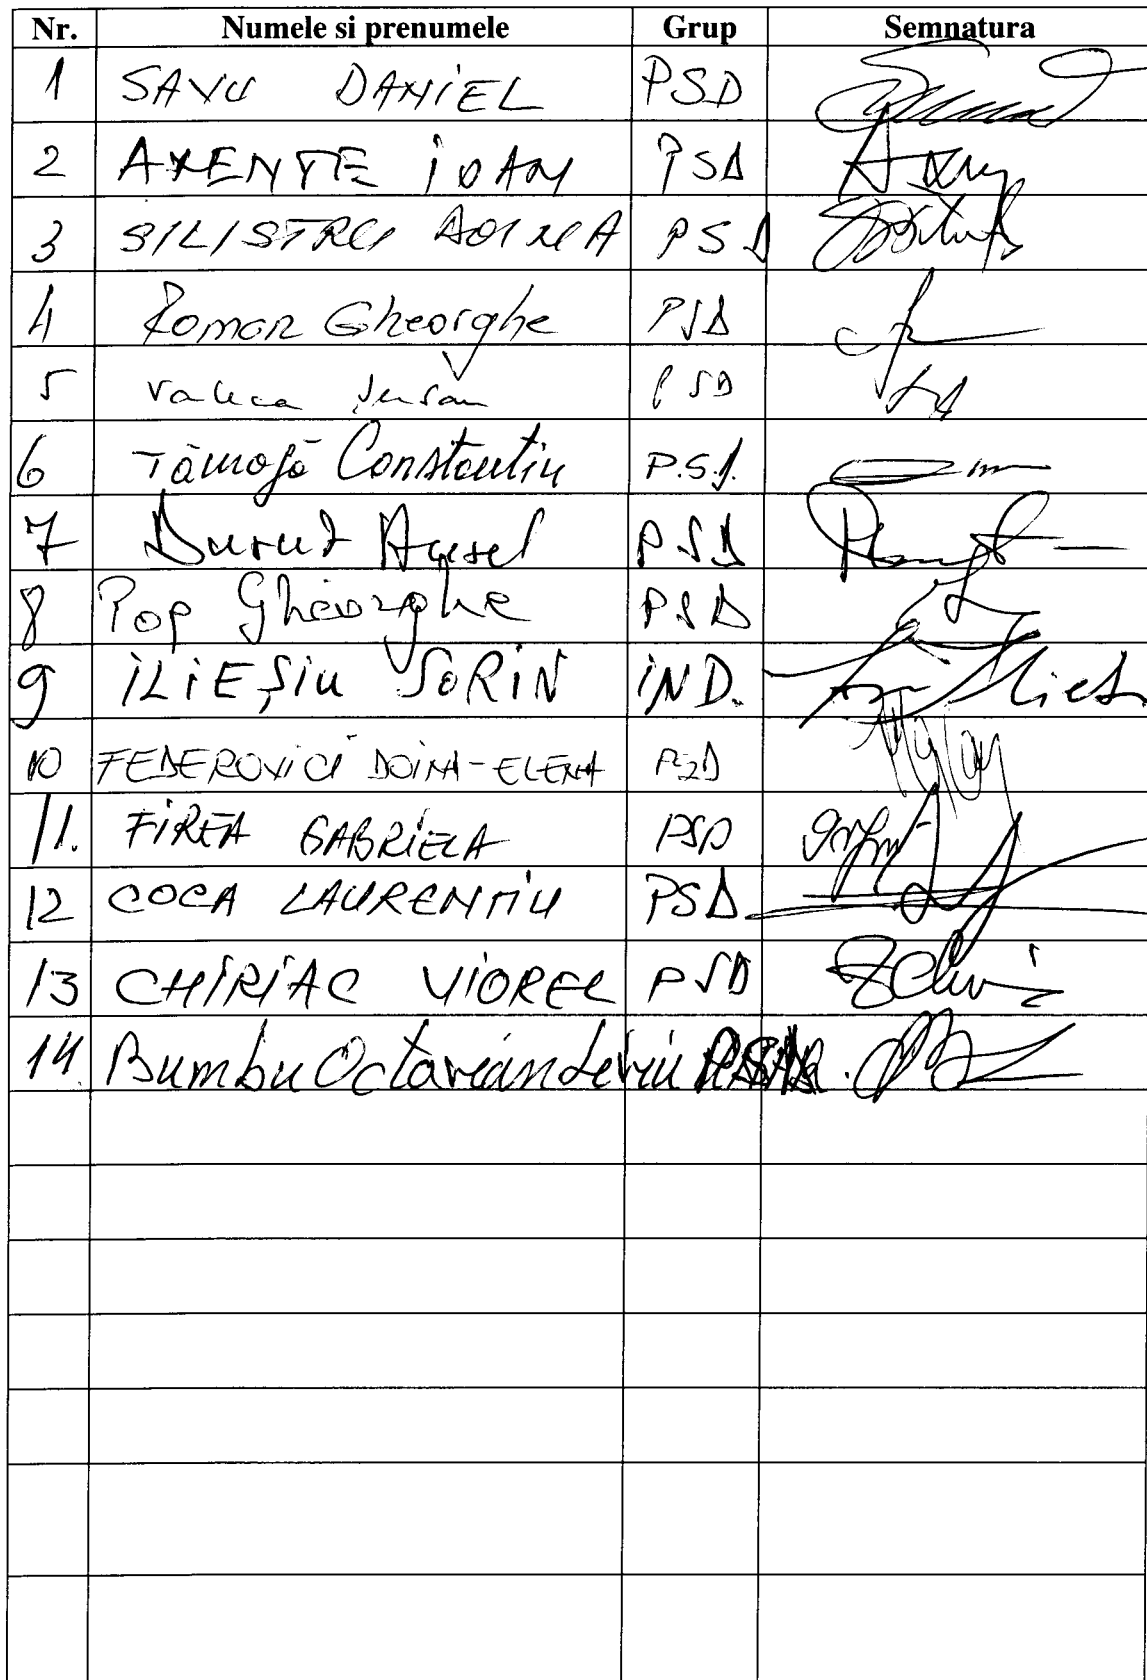 Nr. Numele si prenumele Grup Semnatura
1 SAVU DANIEL PSD
2 AXENTE IOAN PSD
3 SILISTRU DOINA PSD
4 Roman Gheorghe PSD
5 Valeca PSD
6 Tămagă Constantin P.S.D.
7 Duruț Aurel PSD
8 Pop Gheorghe PSD
9 ILIEŞIU SORIN IND.
10 FEDEROVICI DOINA-ELENA PSD
11. FIREA GABRIELA PSD
12 COCA LAURENȚIU PSD
13 CHIRIAC VIOREL PSD
14. Bumbu Octavian Liviu